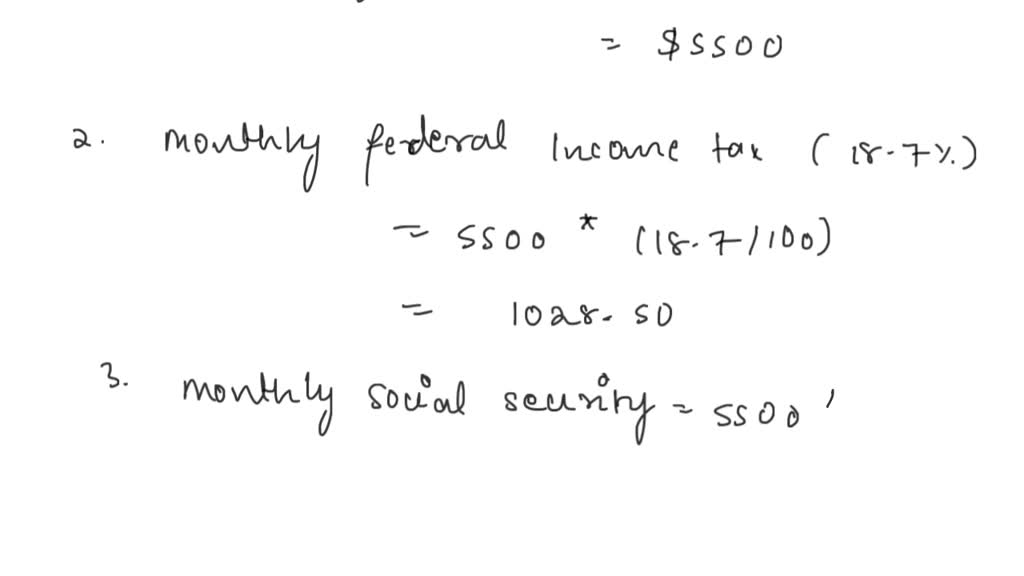 = $5500
2. monthly federal Income tax ( 18.7%)
= 5500 * (18.7/100)
= 1028.50
3. monthly social security = 5500